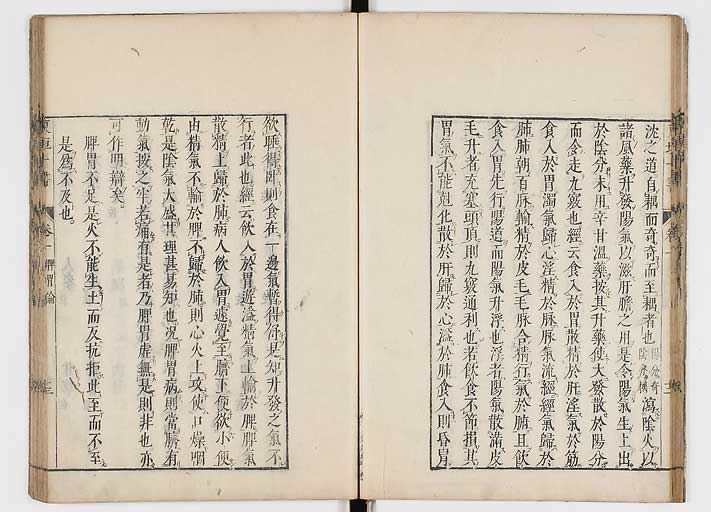 沈之道自耦而奇奇而至耦者也陽分奇陰分耦瀉陰火以
諸風藥升發陽氣以滋肝膽之用是令陽氣生上出
於陰分末用辛甘溫藥接其升藥使大發散於陽分
而令走九竅也經云食入於胃散精於肝淫氣於筋
食入於胃濁氣歸心淫精於脉脉氣流經經氣歸於
肺肺朝百脉輸精於皮毛毛脉合精行氣於腑且飲
食入胃先行陽道而陽氣升浮也浮者陽氣散滿皮
毛升者充塞頭頂則九竅通利也若飲食不節損其
胃氣不能尅化散於肝歸於心溢於肺食入則昏冒
欲睡得臥則食在一邊氣暫得舒是知升發之氣不
行者此也經云飲入於胃遊溢精氣上輸於脾脾氣
散精上歸於肺病人飲入胃遽覺至臍下便欲小便
由精氣不輸於脾不歸於肺則心火上攻使口燥咽
乾是陰氣大盛其理甚易知也況脾胃病則當臍有
動氣按之牢若痛有是者乃脾胃虛無是則非也亦
可作明辯矣
脾胃不足是火不能生土而反抗拒此至而不至
是為不及也
東垣十書
卷一
脾胃論